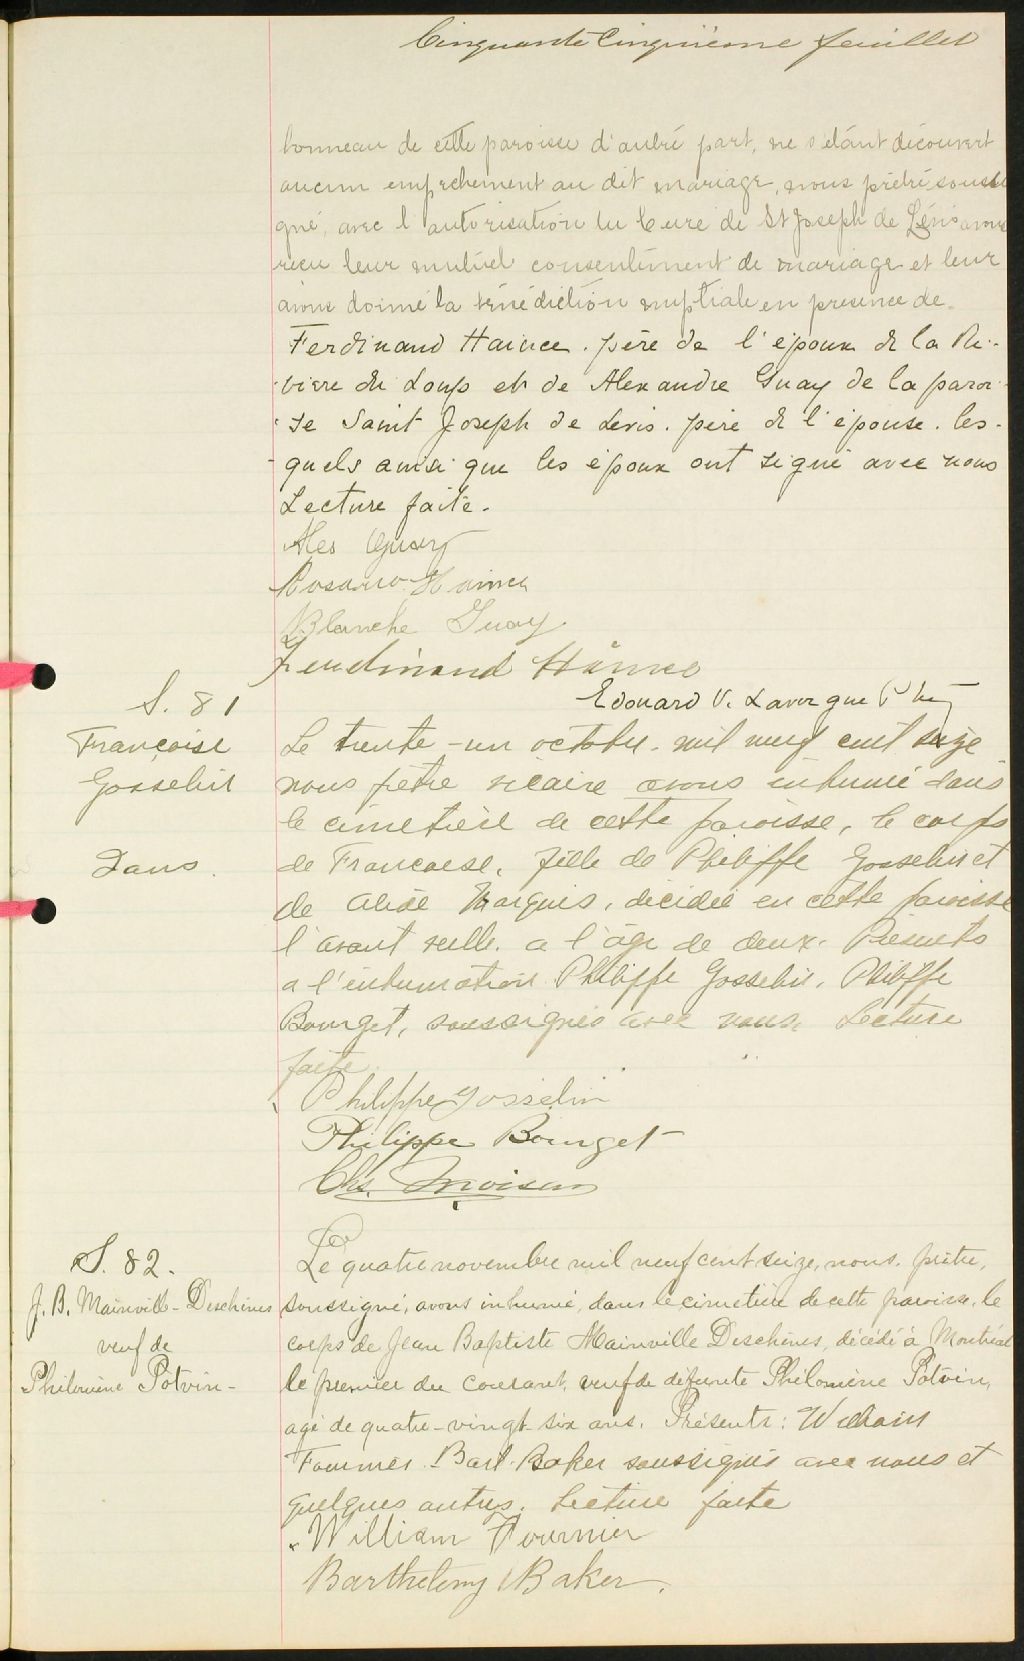 Cinquante Cinquième feuillet
bonneau de cette paroisse d'autre part, ne s'étant découvert
aucun empechement au dit mariage, nous prêtre soussi
gné, avec l'autorisation du Curé de St Joseph de Lévis avons
reçu leur mutuel consentement de mariage et leur
avons donné la bénédiction nuptiale en presence de
Ferdinand Haince. père de l'époux de la Ri-
viere du Loup et de Alexandre Guay de la parois
se Saint Joseph de Levis. père de l'épouse. les-
quels ainsi que les époux ont signé avec nous
Lecture faite.
Alex Guay
Rosario Haince
Blanche Guay
Ferdinand Haince
Edouard V. Lavergne Ptre
S. 81
Françoise
Gosselin
2 ans.
Le trente-un octobre mil neuf cent seize
nous prêtre vicaire avons inhumé dans
le cimetière de cette paroisse, le corps
de Francoise, fille de Philippe Gosselin et
de Marquis, décédée en cette paroisse
l'avant veille. a l'âge de deux. Présents
a l'inhumation Philippe Gosselin, Philippe
Bourget, soussignés avec nous. Lecture
faite.
Philippe Gosselin
Philippe Bourget
Chs. Moisan
S. 82.
J. B. Mainville-Deschênes
veuf de
Philomène Potvin-
Le quatre novembre mil neuf cent seize, nous. prêtre,
soussigné, avons inhumé, dans le cimetière de cette paroisse, le
corps de Jean Baptiste Mainville Deschênes, décédé à Montréal
le premier du courant, veuf de défunte Philomène Potvin,
agé de quatre-vingt-six ans. Présents: William
Fournier. Bart. Baker soussignés avec nous et
quelques autres. Lecture faite
William Fournier
Barthelemy Baker.